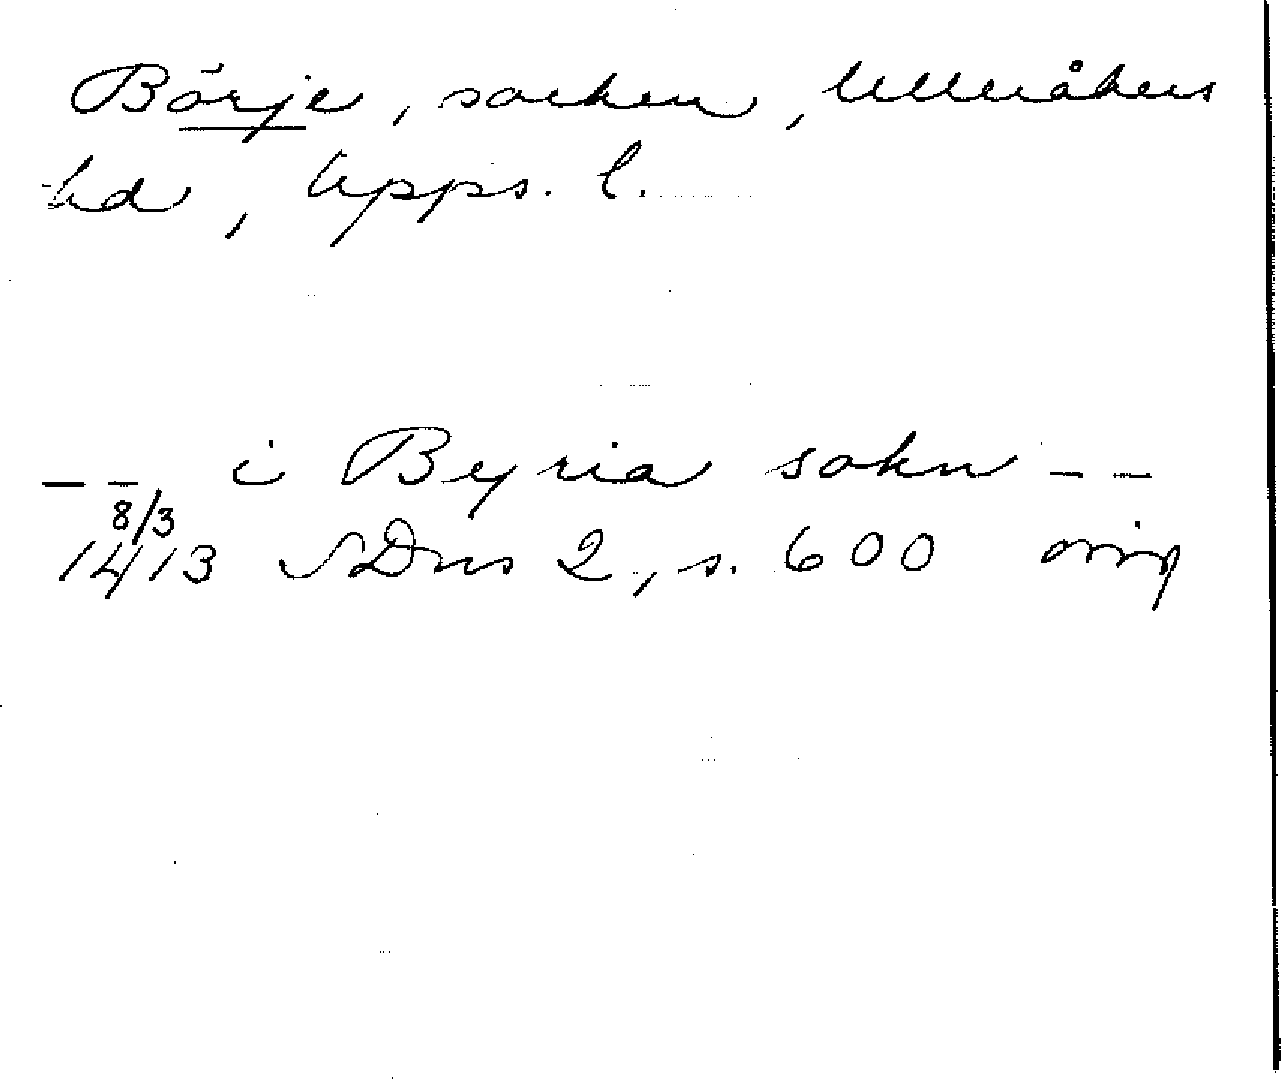 Börje, socken, Ulleråkers
hd, Upps. l.
— — i Byria sokn — —
8/3
1413 SDns 2, s. 600 orig